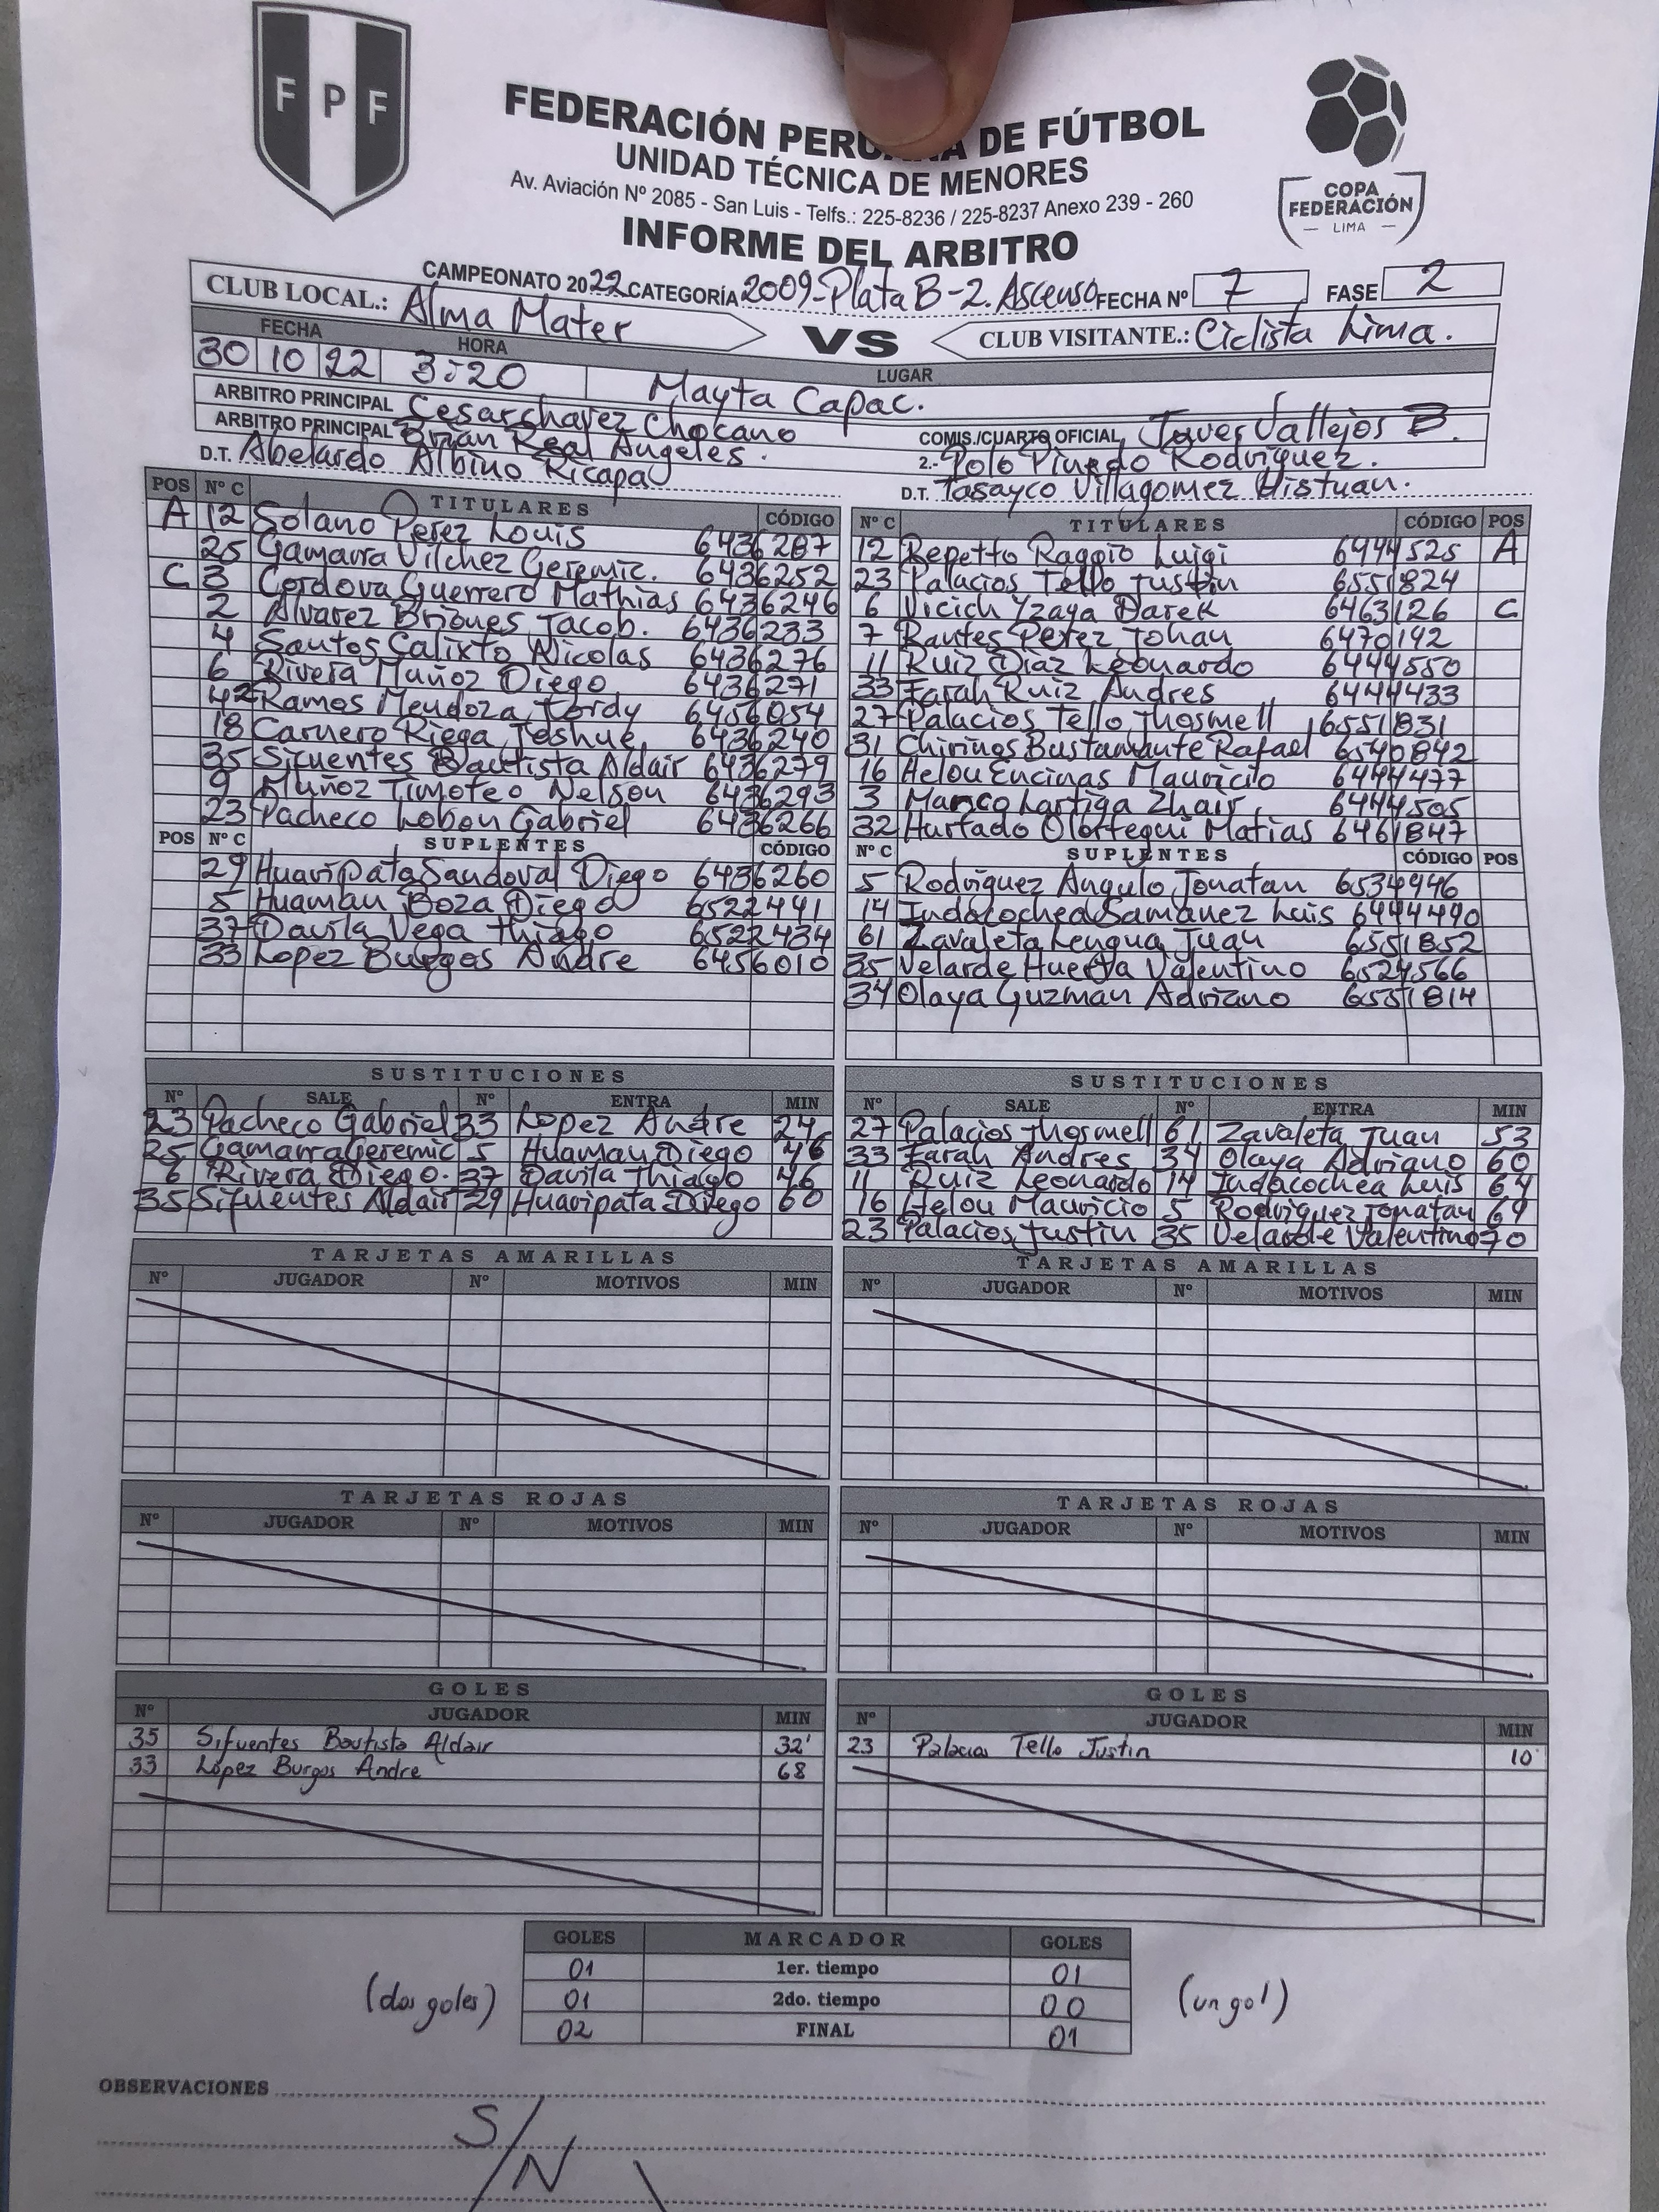 FPF
FEDERACIÓN PERUANA DE FÚTBOL
UNIDAD TÉCNICA DE MENORES
Av. Aviación Nº 2085 - San Luis - Telfs.: 225-8236 / 225-8237 Anexo 239 - 260
INFORME DEL ARBITRO
COPA
FEDERACIÓN
— LIMA —
CAMPEONATO 2022 CATEGORÍA 2009-Plata B-2. Ascenso FECHA Nº 7 FASE 2
CLUB LOCAL.: Alma Mater VS CLUB VISITANTE.: Ciclista Lima.
FECHA HORA LUGAR
30 10 22 3:20 Mayta Capac.
ARBITRO PRINCIPAL Cesar Chavez Chocano COMIS./CUARTO OFICIAL Javer Vallejos B.
ARBITRO PRINCIPAL Brian Real Angeles. 2.- Polo Pinedo Rodriguez.
D.T. Abelardo Albino Ricapa D.T. Tasayco Villagomez
POS Nº C TITULARES CÓDIGO
A 12 Solano Perez Louis 6436287
25 Gamarra Vilchez Geremic. 6436252
C 3 Cordova Guerrero Mathias 6436246
2 Alvarez Briones Jacob. 6436233
4 Santos Calixto Nicolas 6436276
6 Rivera Muñoz Diego 6436271
42 Ramos Mendoza Jordy 6456054
18 Carnero Riega Joshue 6436240
35 Sifuentes Bautista Aldair 6436279
9 Muñoz Timoteo Nelson 6436293
23 Pacheco Lobon Gabriel 6436266
POS Nº C SUPLENTES CÓDIGO
29 Huaripata Sandoval Diego 6436260
5 Huaman Boza Diego 6522441
37 Davila Vega Thiago 6522434
33 Lopez Burgos Andre 6456010
Nº C TITULARES CÓDIGO POS
12 Repetto Raggio Luigi 6444525 A
23 Palacios Tello Justin 6551824
6 Vicich Yzaga Darek 6463126 C
7 Rantes Perez Johan 6470142
11 Ruiz Diaz Leonardo 6444550
33 Farah Ruiz Andres 6444433
27 Palacios Tello Jhosmell 6551831
31 Chirinos Bustamante Rafael 6540842
16 Helou Encinas Mauricio 6444477
3 Manco Lartiga Zhair. 6444505
32 Hurtado Olortegui Matias 6461847
Nº C SUPLENTES CÓDIGO POS
5 Rodriguez Angulo Jonatan 6534946
14 Indacochea Samanez Luis 6444490
61 Zavaleta Lengua Juan 6551852
35 Velarde Huerta Valentino 6524566
34 Olaya Guzman Adriano 6551814
SUSTITUCIONES
Nº SALE Nº ENTRA MIN
23 Pacheco Gabriel 33 Lopez Andre 24
25 Gamarra Geremic 5 Huaman Diego 46
6 Rivera Diego. 37 Davila Thiago 46
35 Sifuentes Aldair 29 Huaripata Diego 60
SUSTITUCIONES
Nº SALE Nº ENTRA MIN
27 Palacios Jhosmell 61 Zavaleta Juan 53
33 Farah Andres 34 Olaya Adriano 60
11 Ruiz Leonardo 14 Indacochea Luis 64
16 Helou Mauricio 5 Rodriguez Jonatan 69
23 Palacios Justin 35 Velarde Valentino 70
TARJETAS AMARILLAS
Nº JUGADOR Nº MOTIVOS MIN
TARJETAS AMARILLAS
Nº JUGADOR Nº MOTIVOS MIN
TARJETAS ROJAS
Nº JUGADOR Nº MOTIVOS MIN
TARJETAS ROJAS
Nº JUGADOR Nº MOTIVOS MIN
GOLES
Nº JUGADOR MIN
35 Sifuentes Bautista Aldair 32'
33 López Burgos Andre 68
GOLES
Nº JUGADOR MIN
23 Palacios Tello Justin 10'
GOLES MARCADOR GOLES
01 1er. tiempo 01
(dos goles) 01 2do. tiempo 00 (un gol)
02 FINAL 01
OBSERVACIONES
S/N